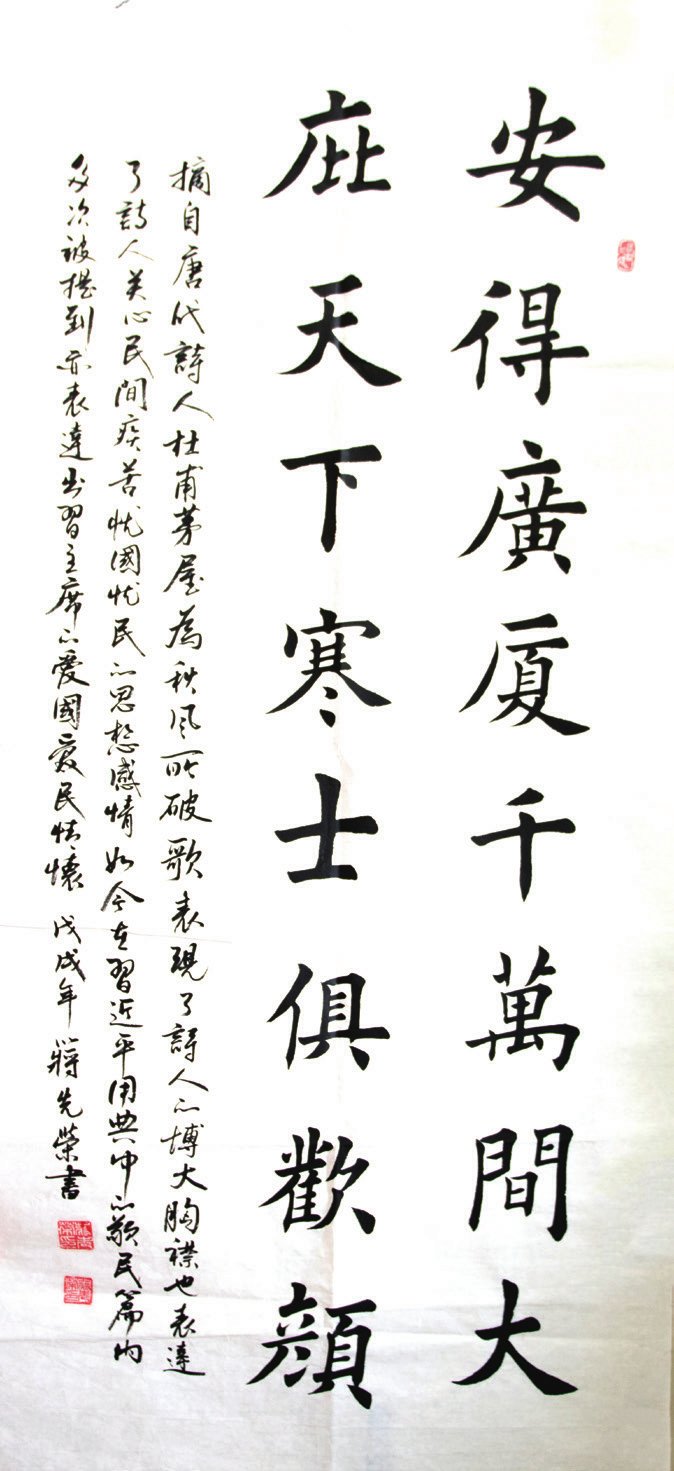 安得廣厦千萬間大
庇天下寒士俱歡顔
摘自唐代詩人杜甫茅屋為秋风所破歌表現了詩人的博大胸襟也表達
了詩人关心民間疾苦忧國忧民的思想感情如今在習近平用典中的敬民篇内
多次被提到亦表達出習主席的爱國爱民情懷 戊戌年 蔣先榮書